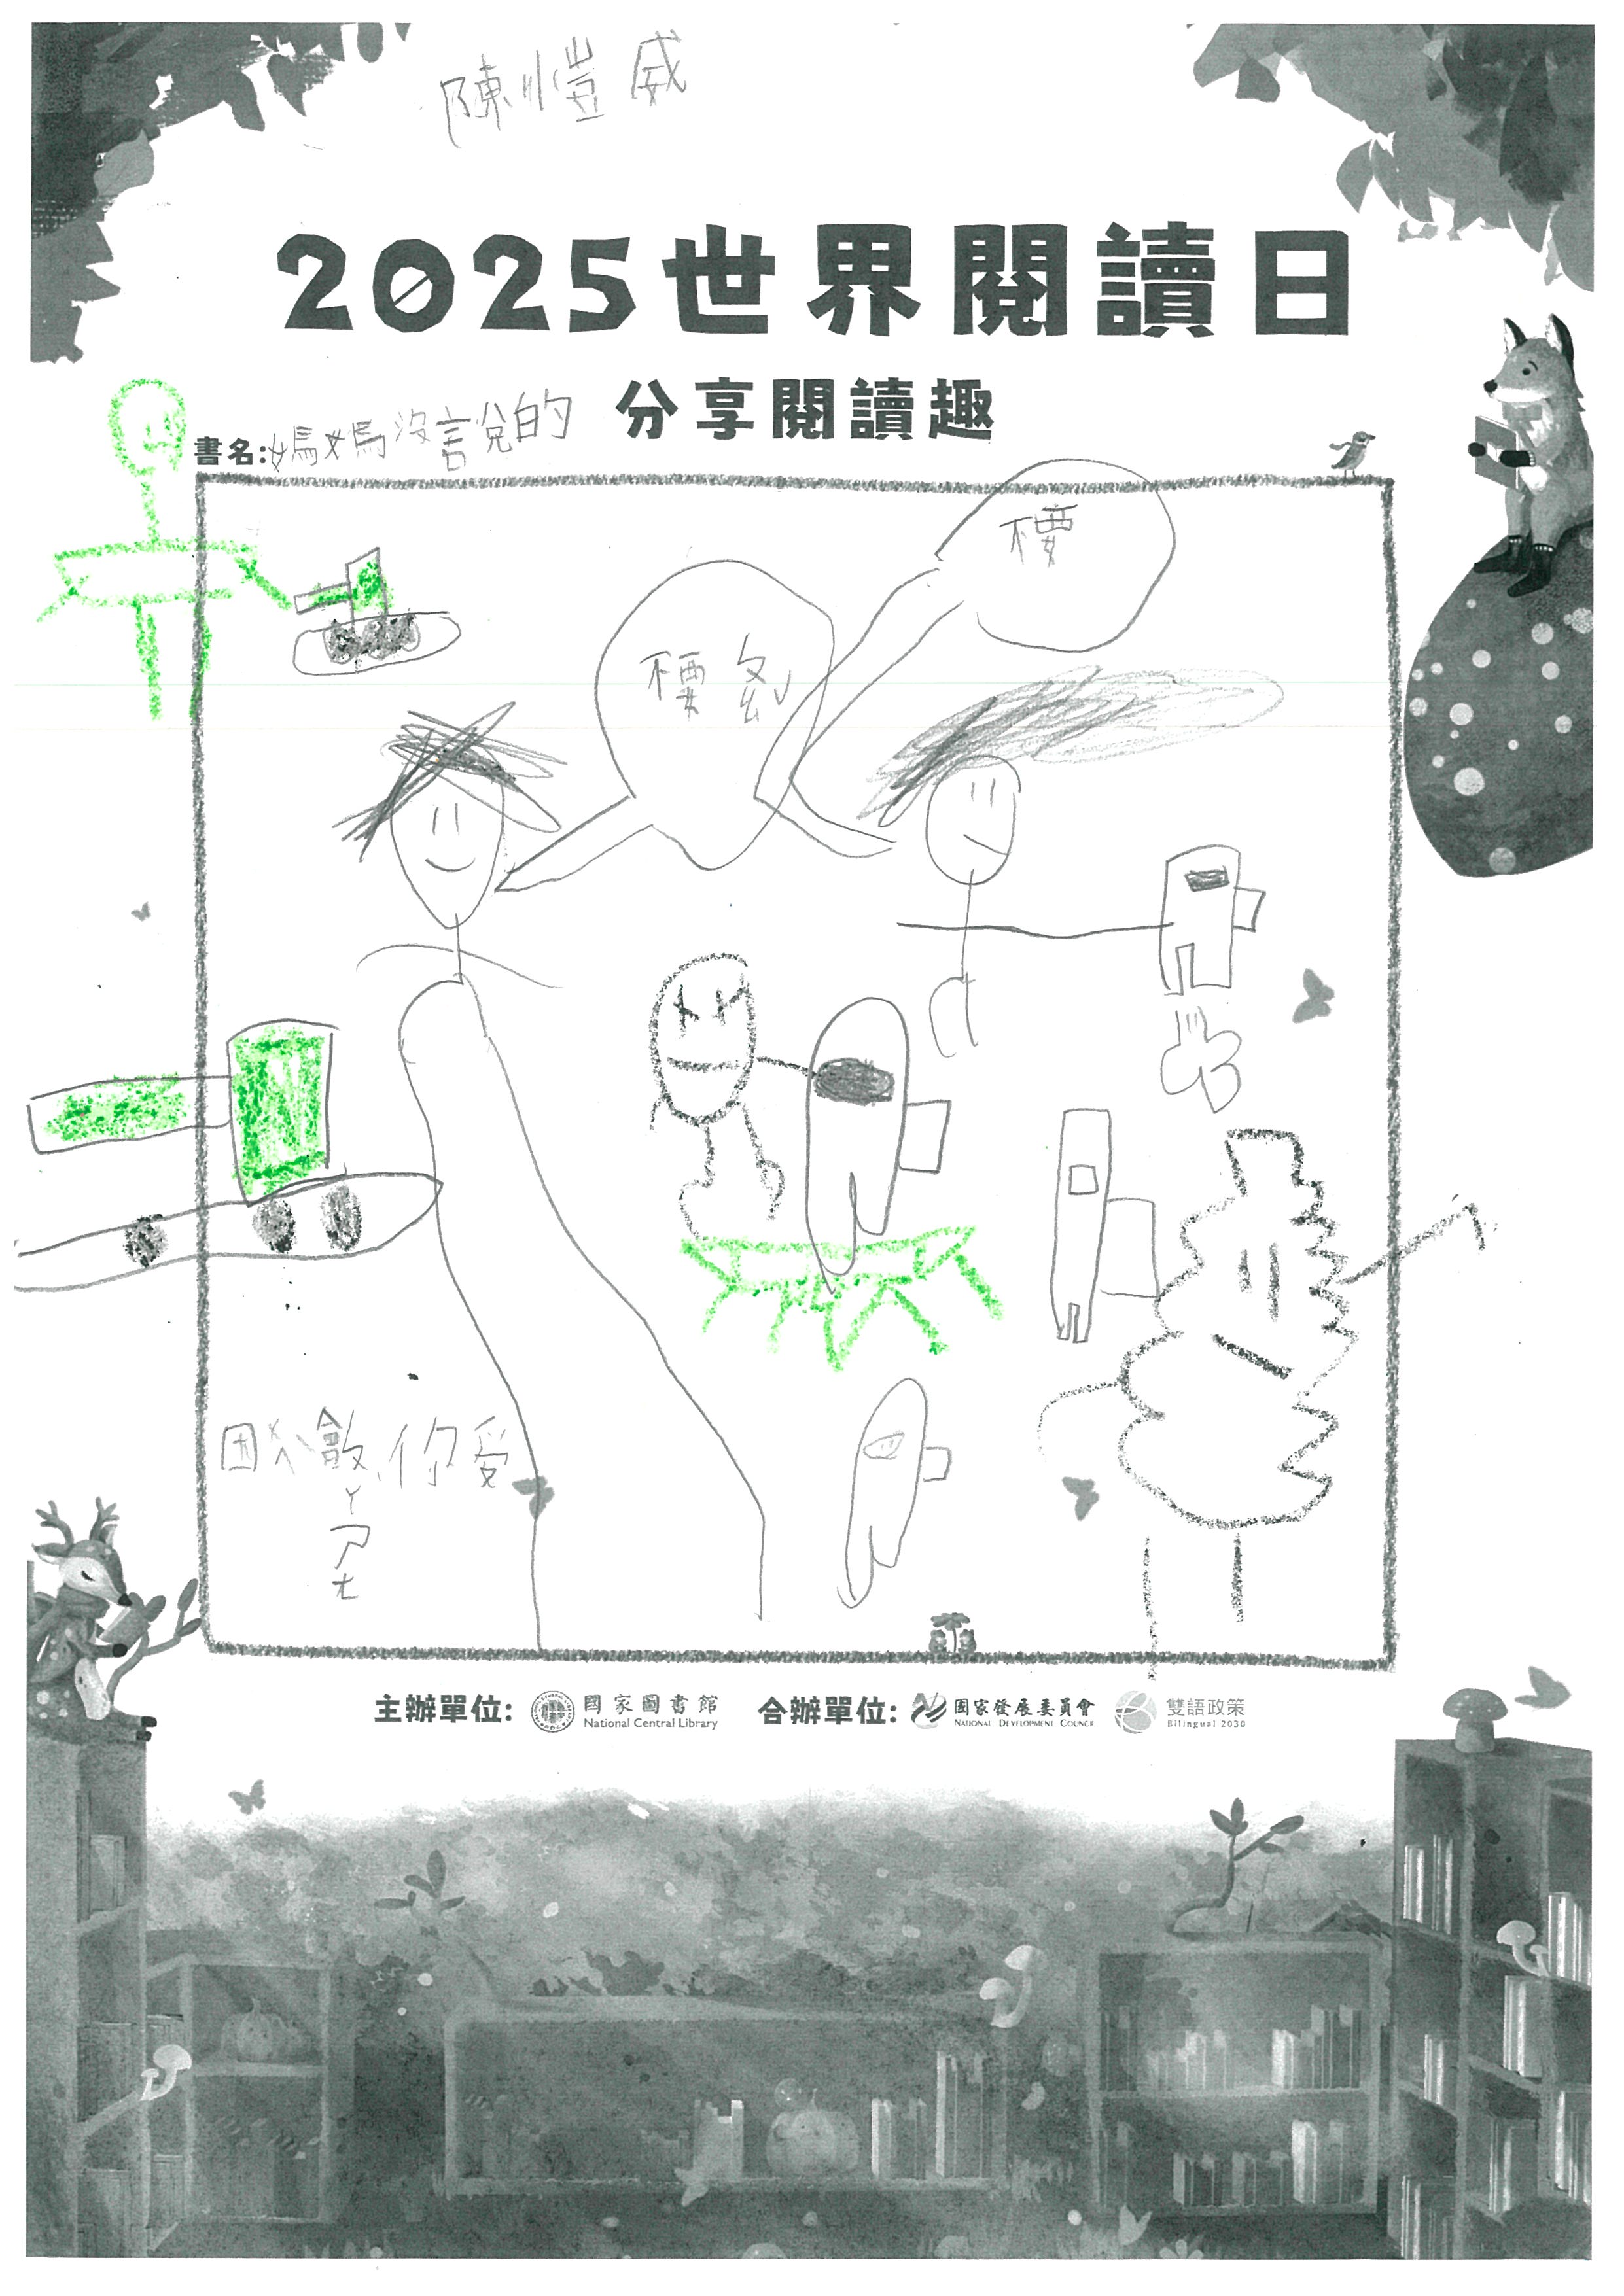 陳愷威
2025世界閱讀日
分享閱讀趣
書名:媽媽沒說的
不要
不要
你
主辦單位: 國家圖書館 National Central Library 合辦單位: 國家發展委員會 NATIONAL DEVELOPMENT COUNCIL 雙語政策 Bilingual 2030